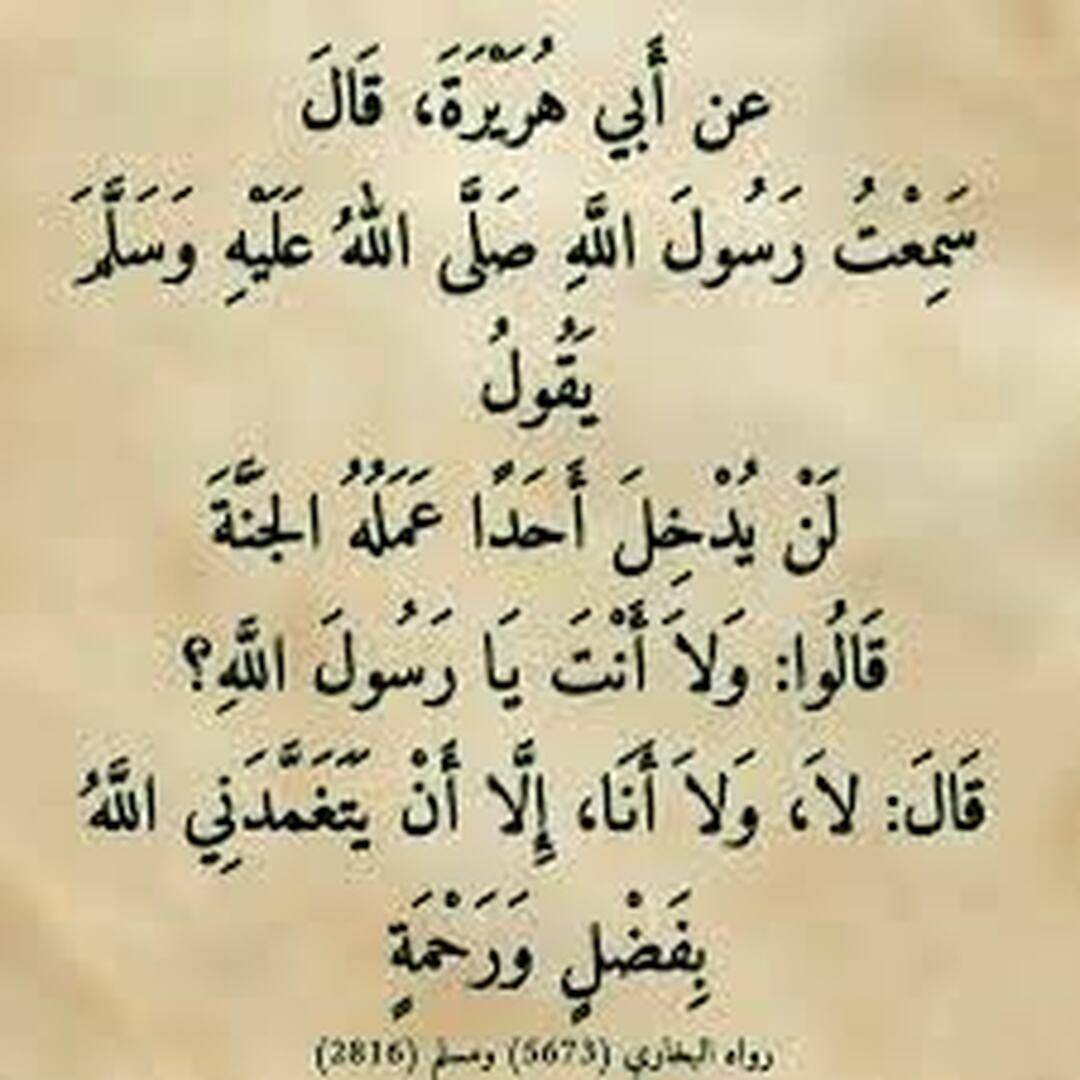 عن أَبي هُرَيْرَةَ، قَالَ
سَمِعْتُ رَسُولَ اللَّهِ صَلَّى اللهُ عَلَيْهِ وَسَلَّمَ
يَقُولُ
لَنْ يُدْخِلَ أَحَدًا عَمَلُهُ الجَنَّةَ
قَالُوا: وَلاَ أَنْتَ يَا رَسُولَ اللَّهِ؟
قَالَ: لاَ، وَلاَ أَنَا، إِلَّا أَنْ يَتَغَمَّدَنِي اللَّهُ
بِفَضْلٍ وَرَحْمَةٍ
رواه البخاري (5673) ومسلم (2816)